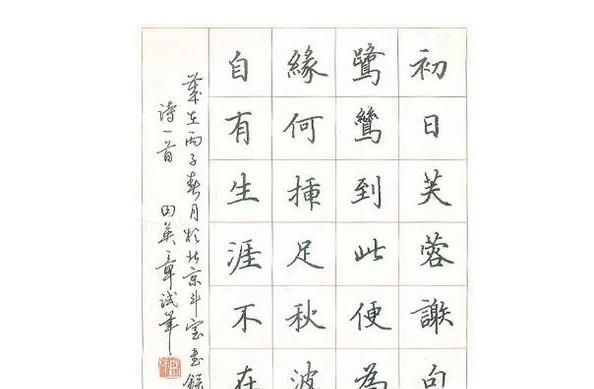 初日芙蓉謝
鷺鷥到此便為
緣何插足秋波
自有生涯不在
歲在丙子春月於北京斗室書錄
詩一首 田英章試筆